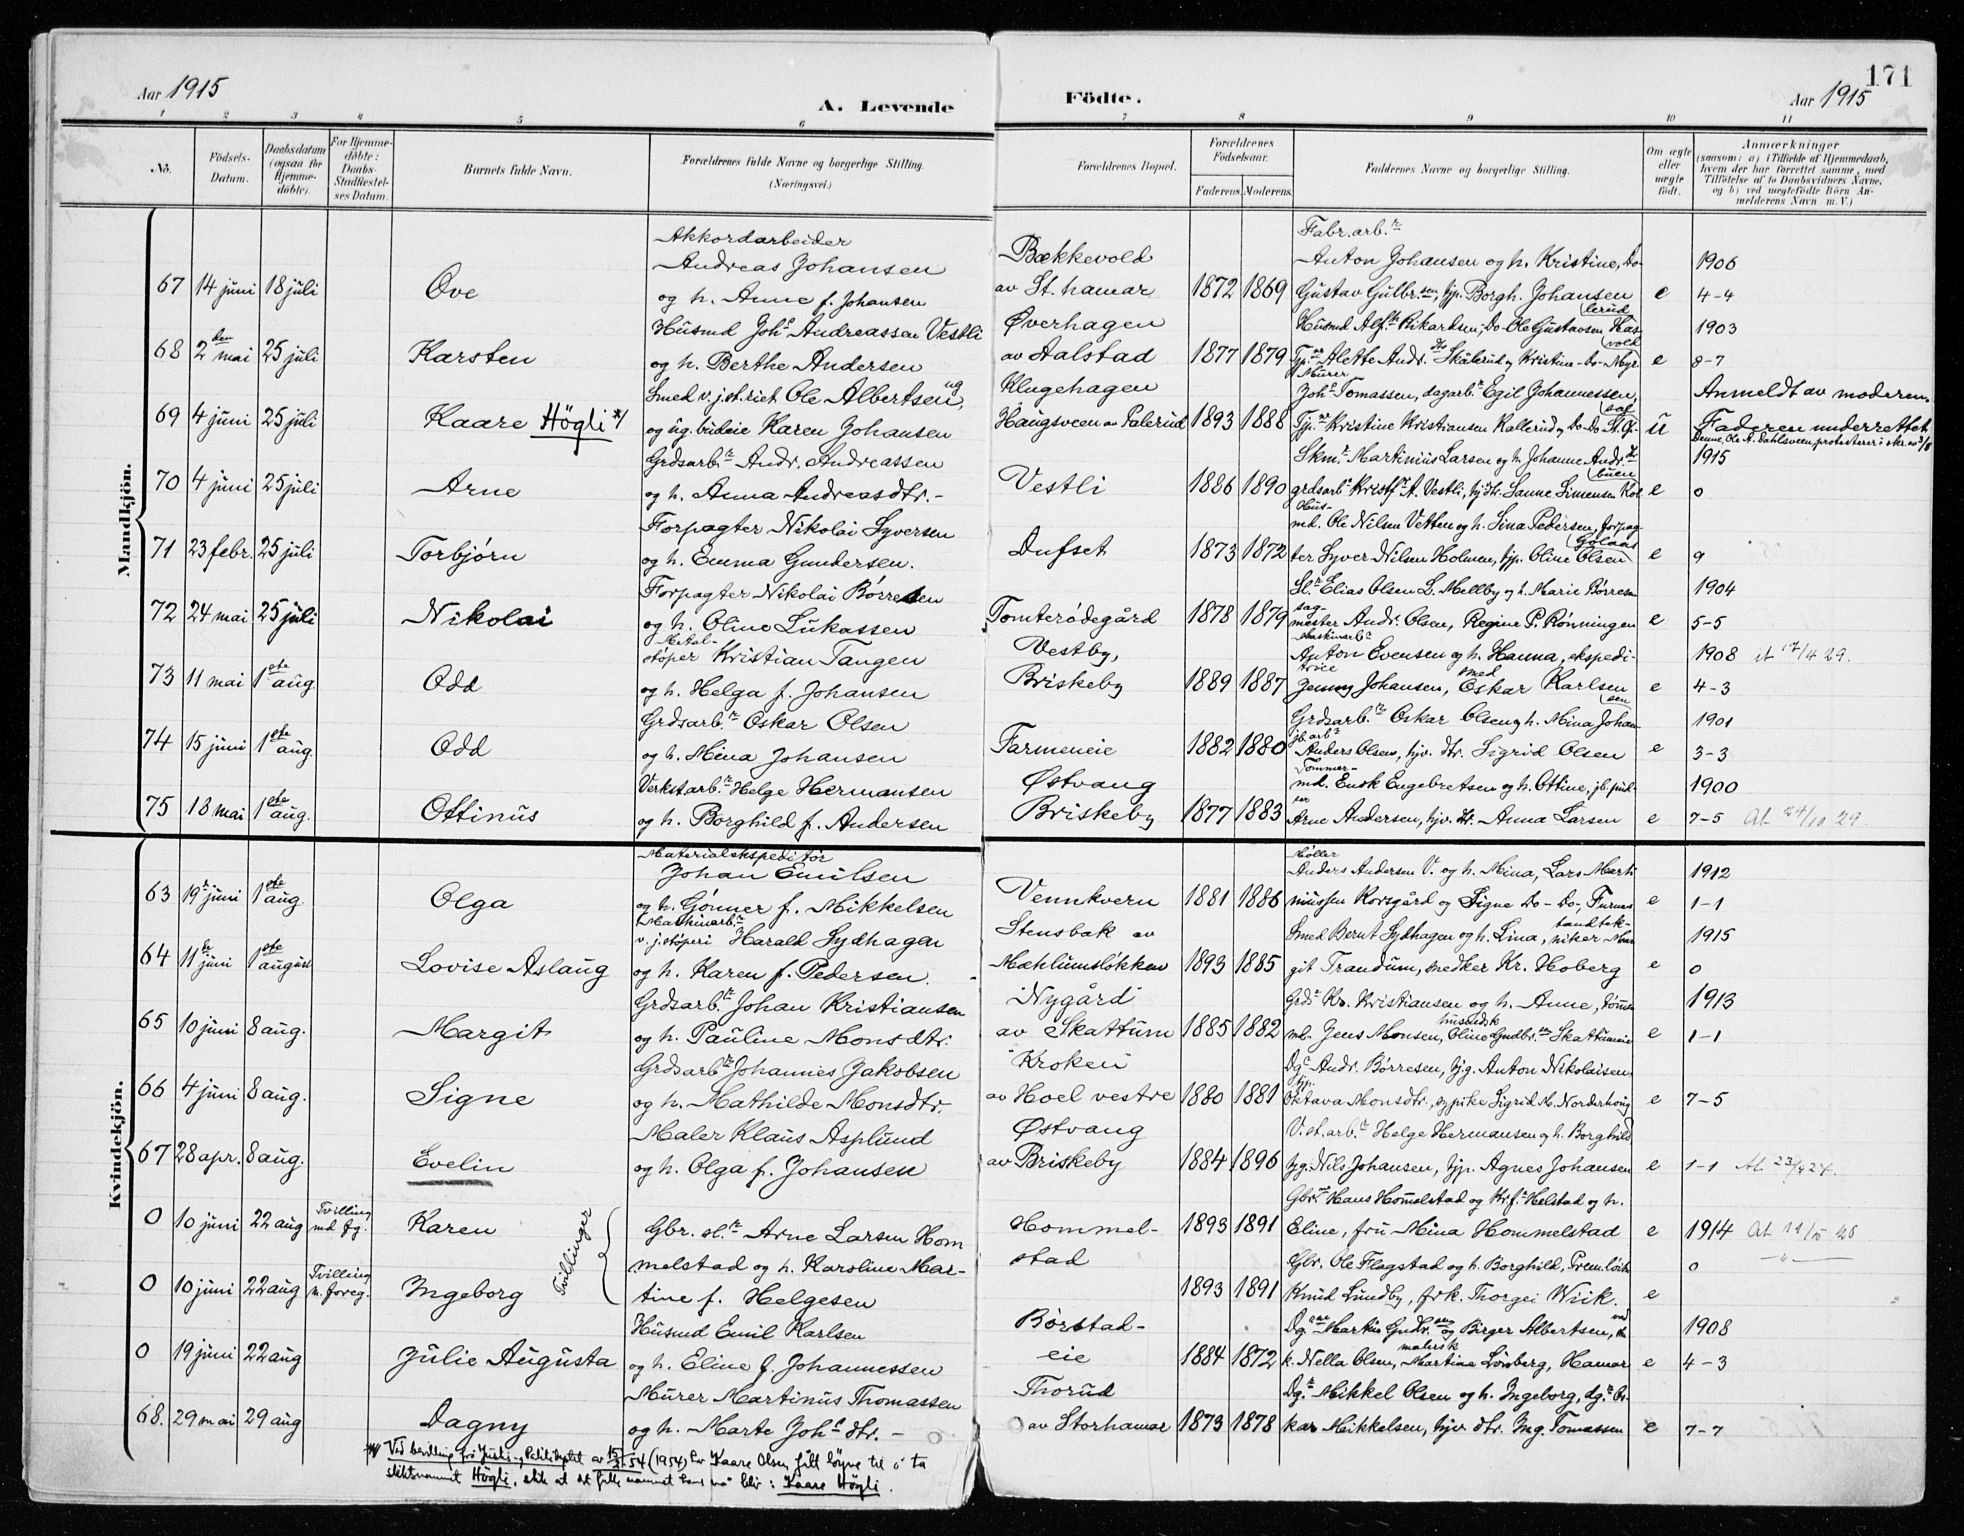 Aar 1915
A. Levende
Födte.
171
Aar 1915
1 2 3 4 5 6 7 8 9 10 11
No.
Födsels-
Datum.
Daabsdatum
(ogsaa for
Hjemme-
döbte).
For Hjemme-
döbte:
Daabs-
Stadfæstel-
ses Datum.
Barnets fulde Navn.
Forældrenes fulde Navne og borgerlige Stilling.
(Næringsvei.)
Forældrenes Bopæl.
Forældrenes
Födselsaar.
Faderens. Moderens.
Faddernes Navne og borgerlige Stilling.
Om ægte
eller
uægte
födt.
Anmærkninger
(saasom: a) i Tilfælde af Hjemmedaab,
hvem der har forrettet samme, med
Tilföielse af to Daabsvidners Navne,
og b) ved uægtefödte Börn An-
melderens Navn m. V.)
Mandkjön.
Akkordarbeider
Andreas Johansen
Bækkevold
Fabr.arb.r
Anton Johansen og h. Kristine, Do-
1906
67 14 juni 18 juli Ove og h. Anne f. Johansen av St. hamar 1872 1869 Gustav Gulbr.sen, tjp. Borgh. Johansen e 4-4
Husmd Johs Andreassen Vestli Øverhagen
1903
68 2den mai 25 juli Karsten og h. Berthe Andersen av Aalstad 1877 1879 e 8-7
Smed v. j.st.riet Ole Albertsen, ug
Klugehagen
Murer
Johs Tomassen, dagarb.r Egil Johannessen,
Anmeldt av moderen.
69 4 juni 25 juli Kaare Högli */ og ug. budeie Karen Johansen Haugsveen av Palerud 1893 1888 u Faderen underrettet
Denne, Ole A. Dahlsveen protesterer i skr. av 3/8
Grdsarb.r Andr. Andreassen
Skm.r Martinius Larsen og h. Johanne
1915
70 4 juni 25 juli Arne og h. Anna Andreasdtr. - Vestli 1886 1890 e 0
Forpagter Nikolai Syversen
Hus-
md. Ole Nilsen Vetten og h. Lina Pedersen, forpag-
71 23 febr. 25 juli Torbjørn og h. Emma Gundersen. Dufset 1873 1872 ter Syver Nilsen Holmen, tjp. Oline Olsen e 9
Forpagter Nikolai Børresen
Sl.r Elias Olsen L. Mellby og h. Marie Børresen
1904
72 24 mai 25 juli Nikolai og h. Oline Lukassen Tomterødegård 1878 1879 sag-
mester Andr. Olsen, Regine P. Rønningen e 5-5
Metal-
støper Kristian Tangen
Vestby,
Maskinarb.r
Anton Evensen og h. Hanna, ekspedi-
1908 at 17/4 29.
73 11 mai 1ste aug. Odd og h. Helga f. Johansen Briskeby 1889 1887 trice
Jenny Johansen, smed Oskar Karlsen e 4-3
Grdsarb.r Oskar Olsen
Grdsarb.r Oskar Olsen og h. Mina Johansen
1901
74 15 juni 1ste aug. Odd og h. Mina Johansen Farmeneie 1882 1880 jb.arb.r
Anders Olsen, hjv. dtr. Sigrid Olsen e 3-3
Verkstarb.r Helge Hermansen
Østvang
Tømmer-
md. Enok Engebretsen og h. Ottine, jb. pud-
1900
75 18 mai 1ste aug. Ottinus og h. Borghild f. Andersen Briskeby 1877 1883 ser
Arne Andersen, hjv. dtr. Anna Larsen e 7-5 At. 24/10 29.
Kvindekjön.
Materialekspeditør
Johan Emilsen
Møller
Anders Andersen V. og h. Mina, Lars Marti
1912
63 19r juni 1ste aug Olga og h. Gønner f. Mikkelsen Vennkvern 1881 1886 niussen Korsgård og Signe Do - Do-, Furnes e 1-1
Maskinarb.r
v. j.støperi Harald Sydhagen
Stensbak av
Smed Bernt Sydhagen og h. Lina, tandtek-
niker Mar
1915
64 11te juni 1ste august Lovise Aslaug og h. Karen f. Pedersen. Mæhlumsløkken 1893 1885 git Trandum, snedker Kr. Hoberg e 0
Grdsarb.r Johan Kristiansen
"Nygård"
Grds Kr. Kristiansen og h. Anne, tømr
1913
65 10 juni 8 aug. Margit og h. Pauline Monsdtr. av Skattum 1885 1882 md. Jens Monsen, husbedsk Oline Gudbr.sen Skattumeie e 1-1
Grdsarb.r Johannes Jakobsen
"Kroken"
Dg.r Andr. Børresen, tjg. Anton Nikolaisen
66 4 juni 8 aug. Signe og h. Mathilde Monsdtr. av Hoel vestre 1880 1881 tjp.
Oktava Monsdtr., sypike Sigrid M. Norderhaug e 7-5
Maler Klaus Asplund
Østvang
V.st.arb.r Helge Hermansen og h. Borghild
67 28 apr. 8 aug. Evelin og h. Olga f. Johansen av Briskeby 1884 1896 tjg. Nils Johansen, tjp. Agnes Johansen e 1-1 At. 23/4 24.
Gbr.ne Hans Hommelstad og Kr. f. Helstad og h.
0 10 juni 22 aug Tvilling
md flg. Karen Tvillinger Gbr. sl.r Arne Larsen Hom Hommel- 1893 1891 Eline, fru Mina Hommelstad e 1914
melstad og h. Karoline Mar- stad Gbr. Ole Flagstad og h. Borghild, Prem.løitn 0 -"-
0 10 juni 22 aug Tvilling
m. foreg. Ingeborg tine f. Helgesen 1893 1891 Knud Lundby, frk. Thorgei Wiik. e
Husmd Emil Karlsen
Børstad-
Dg.ne Martin Gudr.sen og Birger Albertsen,
1908
0 19 juni 22 aug Julie Augusta og h. Eline f. Johannessen eie 1884 1872 k. Nella Olsen, malersk Martina Lønberg, Hamar e 4-3
Murer Martinus Thomassen
Thorud
Dg.r Mikkel Olsen og h. Ingeborg, dg.r Os-
68. 29 mai 29 aug Dagny og h. Marte Johs dtr. - av Storhamar 1873 1878 kar Mikkelsen, hjv. dtr. Ing. Tomassen e 7-7
*/ Ved bevilling fra Justis- og Politideptet av 15/2-54 (1954) er Kaare Olsen gitt løyve til å ta
slektsnamnet Högli, slik at det fulle namnet hans nå blir: Kaare Högli.